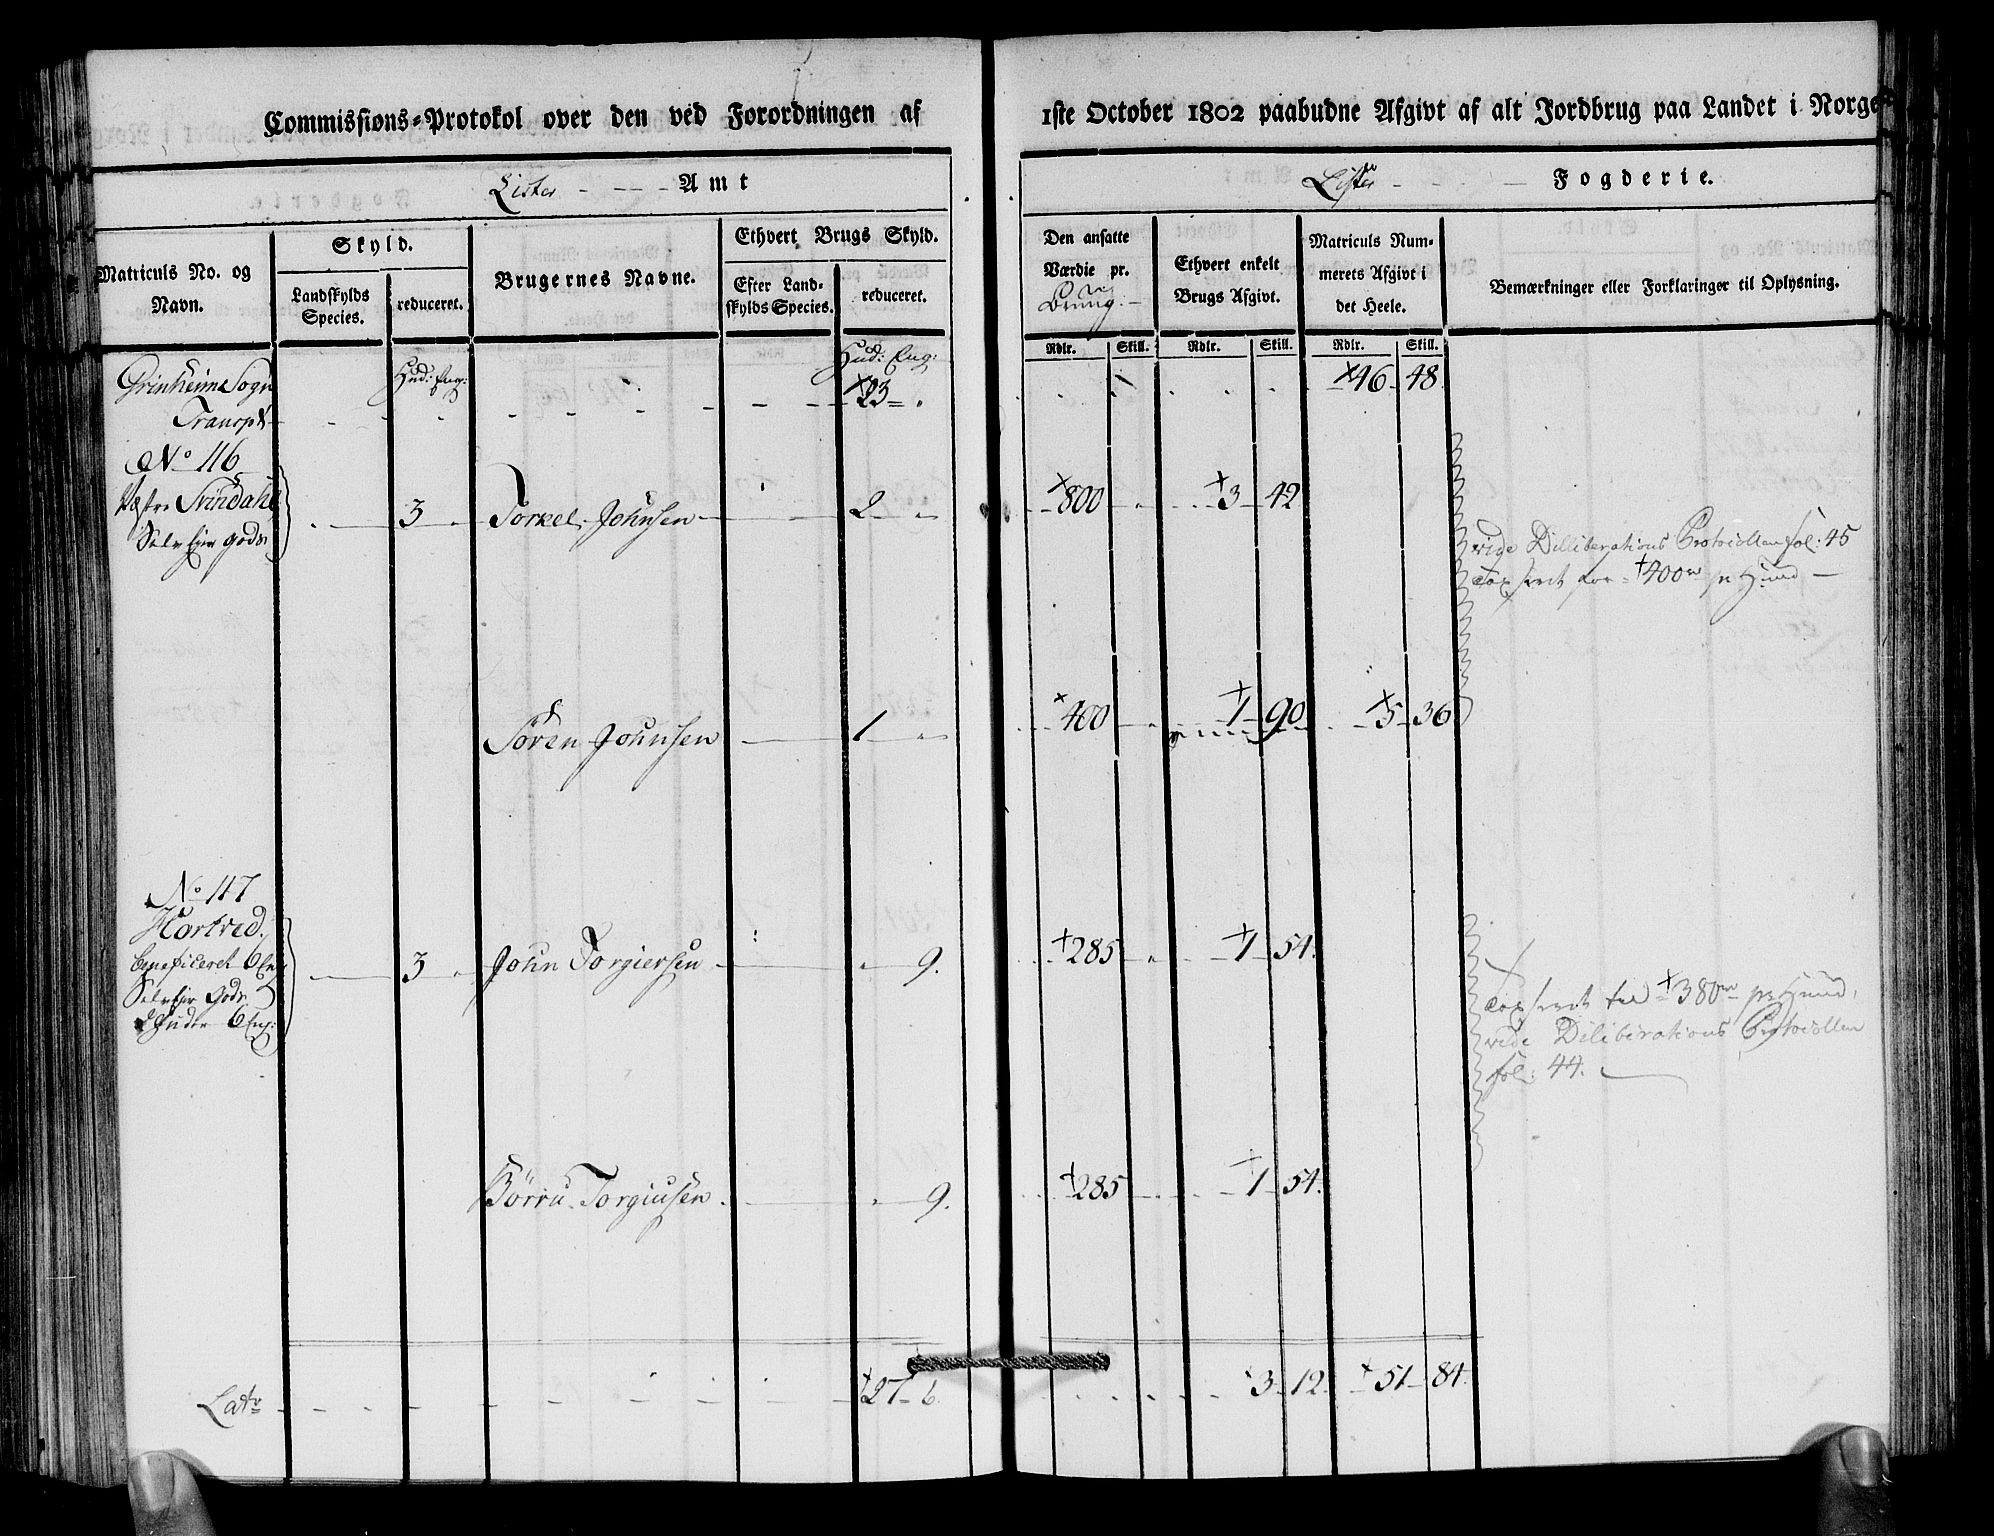 Commissions-Protokol over den ved Forordningen af
Lister - - - - Amt
Matriculs No. og Navn.
Skyld.
Landskylds Species.
reduceret.
Brugernes Navne.
Ethvert Brugs Skyld.
Efter Landskylds Species.
reduceret.
Hud: Eng:
Hud: Eng:
Grinheims Sogn
Transpt - - - - - - - - - ×23 = "
No 116
Vestre Svindahl
Selv Eier gods
3 Torkel Johnsen 2
Søren Johnsen 1
No 117
Hortved.
beneficeret 6 Eng
Selv Eier Gods
2 Huder 6 Eng:
3 John Torgiersen 9.
Børru Torgiusen 9.
Latr - - - - - - - - - †27 - 6.
1ste October 1802 paabudne Afgivt af alt Jordbrug paa Landet i Norge
Lister - - - Fogderie.
Den ansatte Værdie pr. Brug.
Ethvert enkelt Brugs Afgivt.
Matriculs Nummerets Afgivt i det Heele.
Bemærkninger eller Forklaringer til Oplysning.
Rdlr. Skill. Rdlr. Skill. Rdlr. Skill.
×46 - 48
×800 - †3 - 42
vide Delliberations Protocollen fol: 45
Taxseret for †400 rd pr Hud —
×400 - †1 - 90 - †5 - 36
†285 - †1 - 54.
Taxseret til †380 rd pr Hud,
vide Deliberations Protocollen
fol: 44.
†285 - †1 - 54.
3 - 12. †51 - 84.